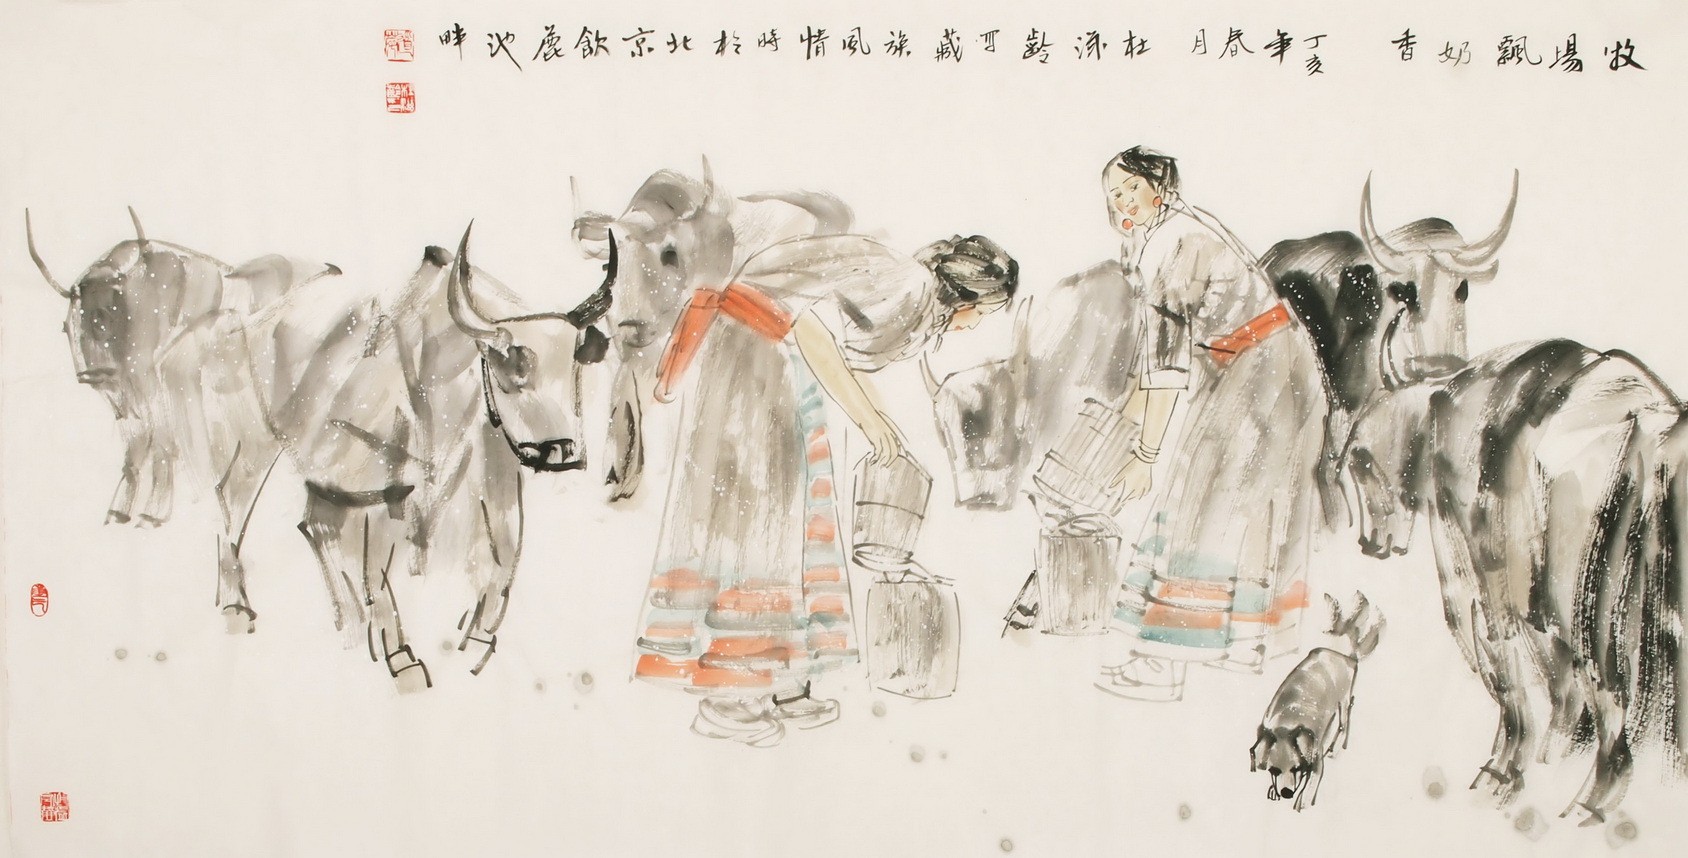 牧場飄奶香 丁亥年春月 杜滋齡写藏族風情時於北京飲鹿池畔